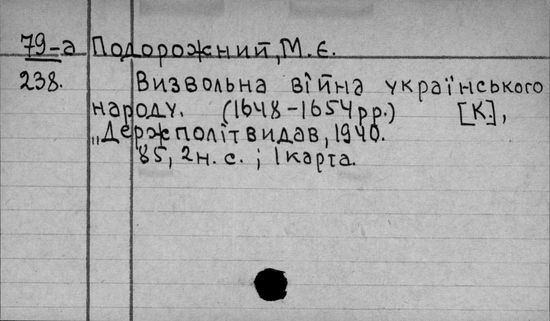 79-а Подорожний, М. Є.
238. Визвольна війна українського
народу. (1648-1654 рр.) [К],
„Держполітвидав, 1940.
85, 2 н. с. ; 1 карта.